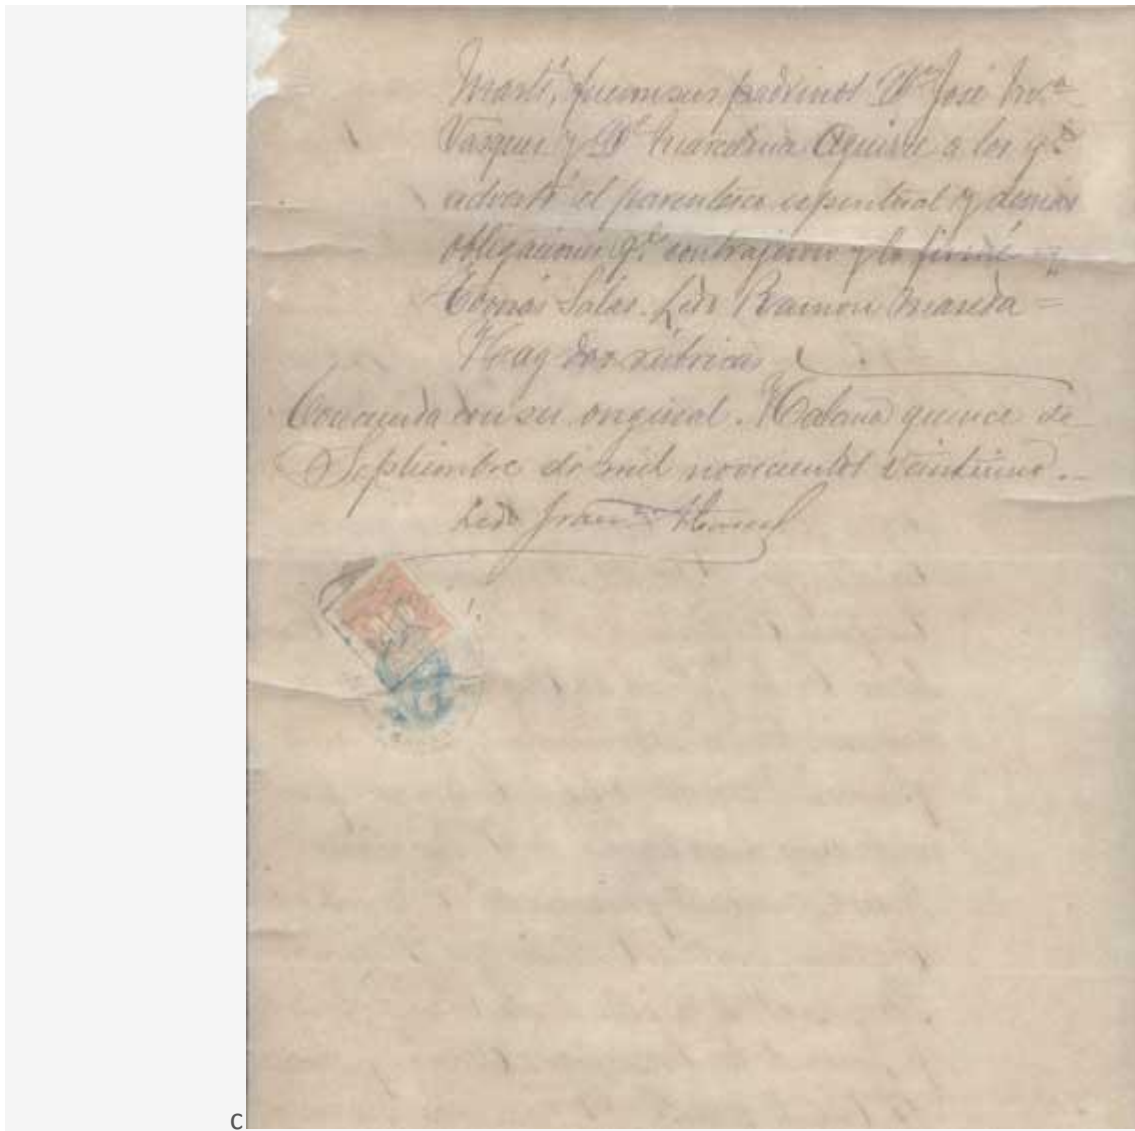 Martí, fueron sus padrinos Dn José Ma
Vazquez y Da Marcelina Aguirre a los qe
advertí el parentesco espiritual y demás
obligaciones qe contrajeron y lo firmé
Tomás Salas. Ldo Ramon
Hay dos rúbricas
Concuerda con su original. Habana quince de
Septiembre de mil novecientos veintiuno.
Ldo
C